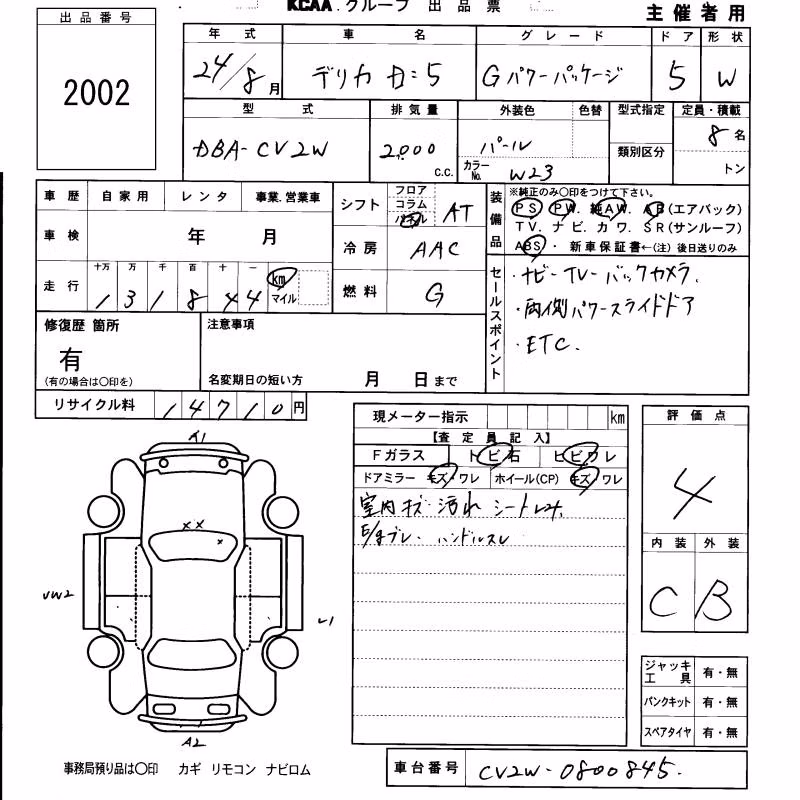 KCAA.グループ 出品票
主催者用
出品番号
2002
年式 車名 グレード ドア 形状
24/8月 デリカ D:5 Gパワーパッケージ 5 W
型式 排気量 外装色 色替 型式指定 定員・積載
DBA-CV2W 2000 c.c. パール 類別区分 8名
カラーNo. W23 トン
車歴 自家用 レンタ 事業.営業車
車検 年 月
走行 十万 万 千 百 十 一
1 3 1 8 4 4 km マイル
シフト フロア コラム パネル AT
冷房 AAC
燃料 G
装備品 ※純正のみ○印をつけて下さい。
PS. PW. 純AW. AB(エアバック)
TV. ナビ. カワ. SR(サンルーフ)
ABS ・ 新車保証書←(注) 後日送りのみ
セールスポイント
・ナビーTVーバックカメラ.
・両側パワースライドドア
・ETC.
修復歴 箇所
有
(有の場合は○印を)
注意事項
名変期日の短い方 月 日まで
リサイクル料 14710円
現メーター指示 km
【査定員記入】
Fガラス トビ石 ヒビワレ
ドアミラー キズ・ワレ ホイール(CP) キズ・ワレ
室内キズ・汚れ シート
ハンドルスレ
評価点
4
内装 外装
C B
ジャッキ工具 有・無
パンクキット 有・無
スペアタイヤ 有・無
A1
XX
x
UW2
U1
A2
事務局預り品は○印 カギ リモコン ナビロム
車台番号 CV2W-0800845.